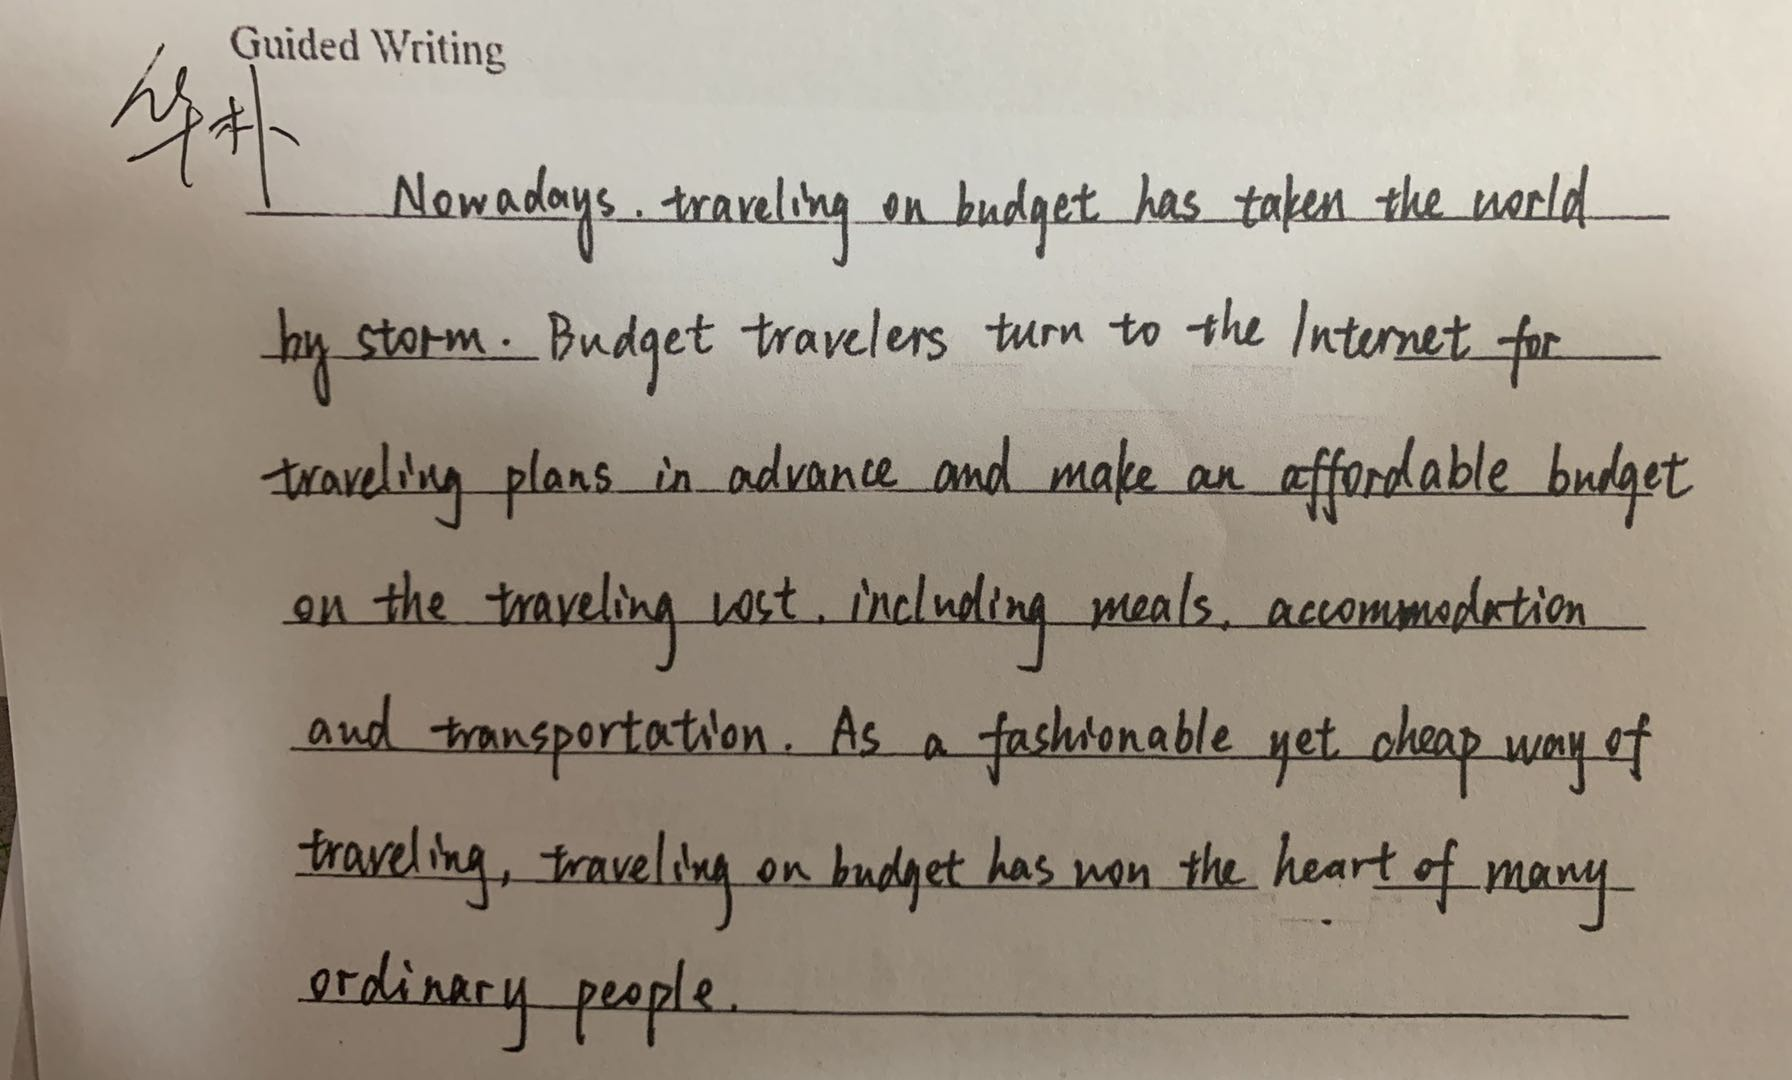 Guided Writing
华朴
Nowadays. traveling on budget has taken the world
by storm. Budget travelers turn to the Internet for
traveling plans in advance and make an affordable budget
on the traveling cost, including meals, accommodation
and transportation. As a fashionable yet cheap way of
traveling, traveling on budget has won the heart of many
ordinary people.